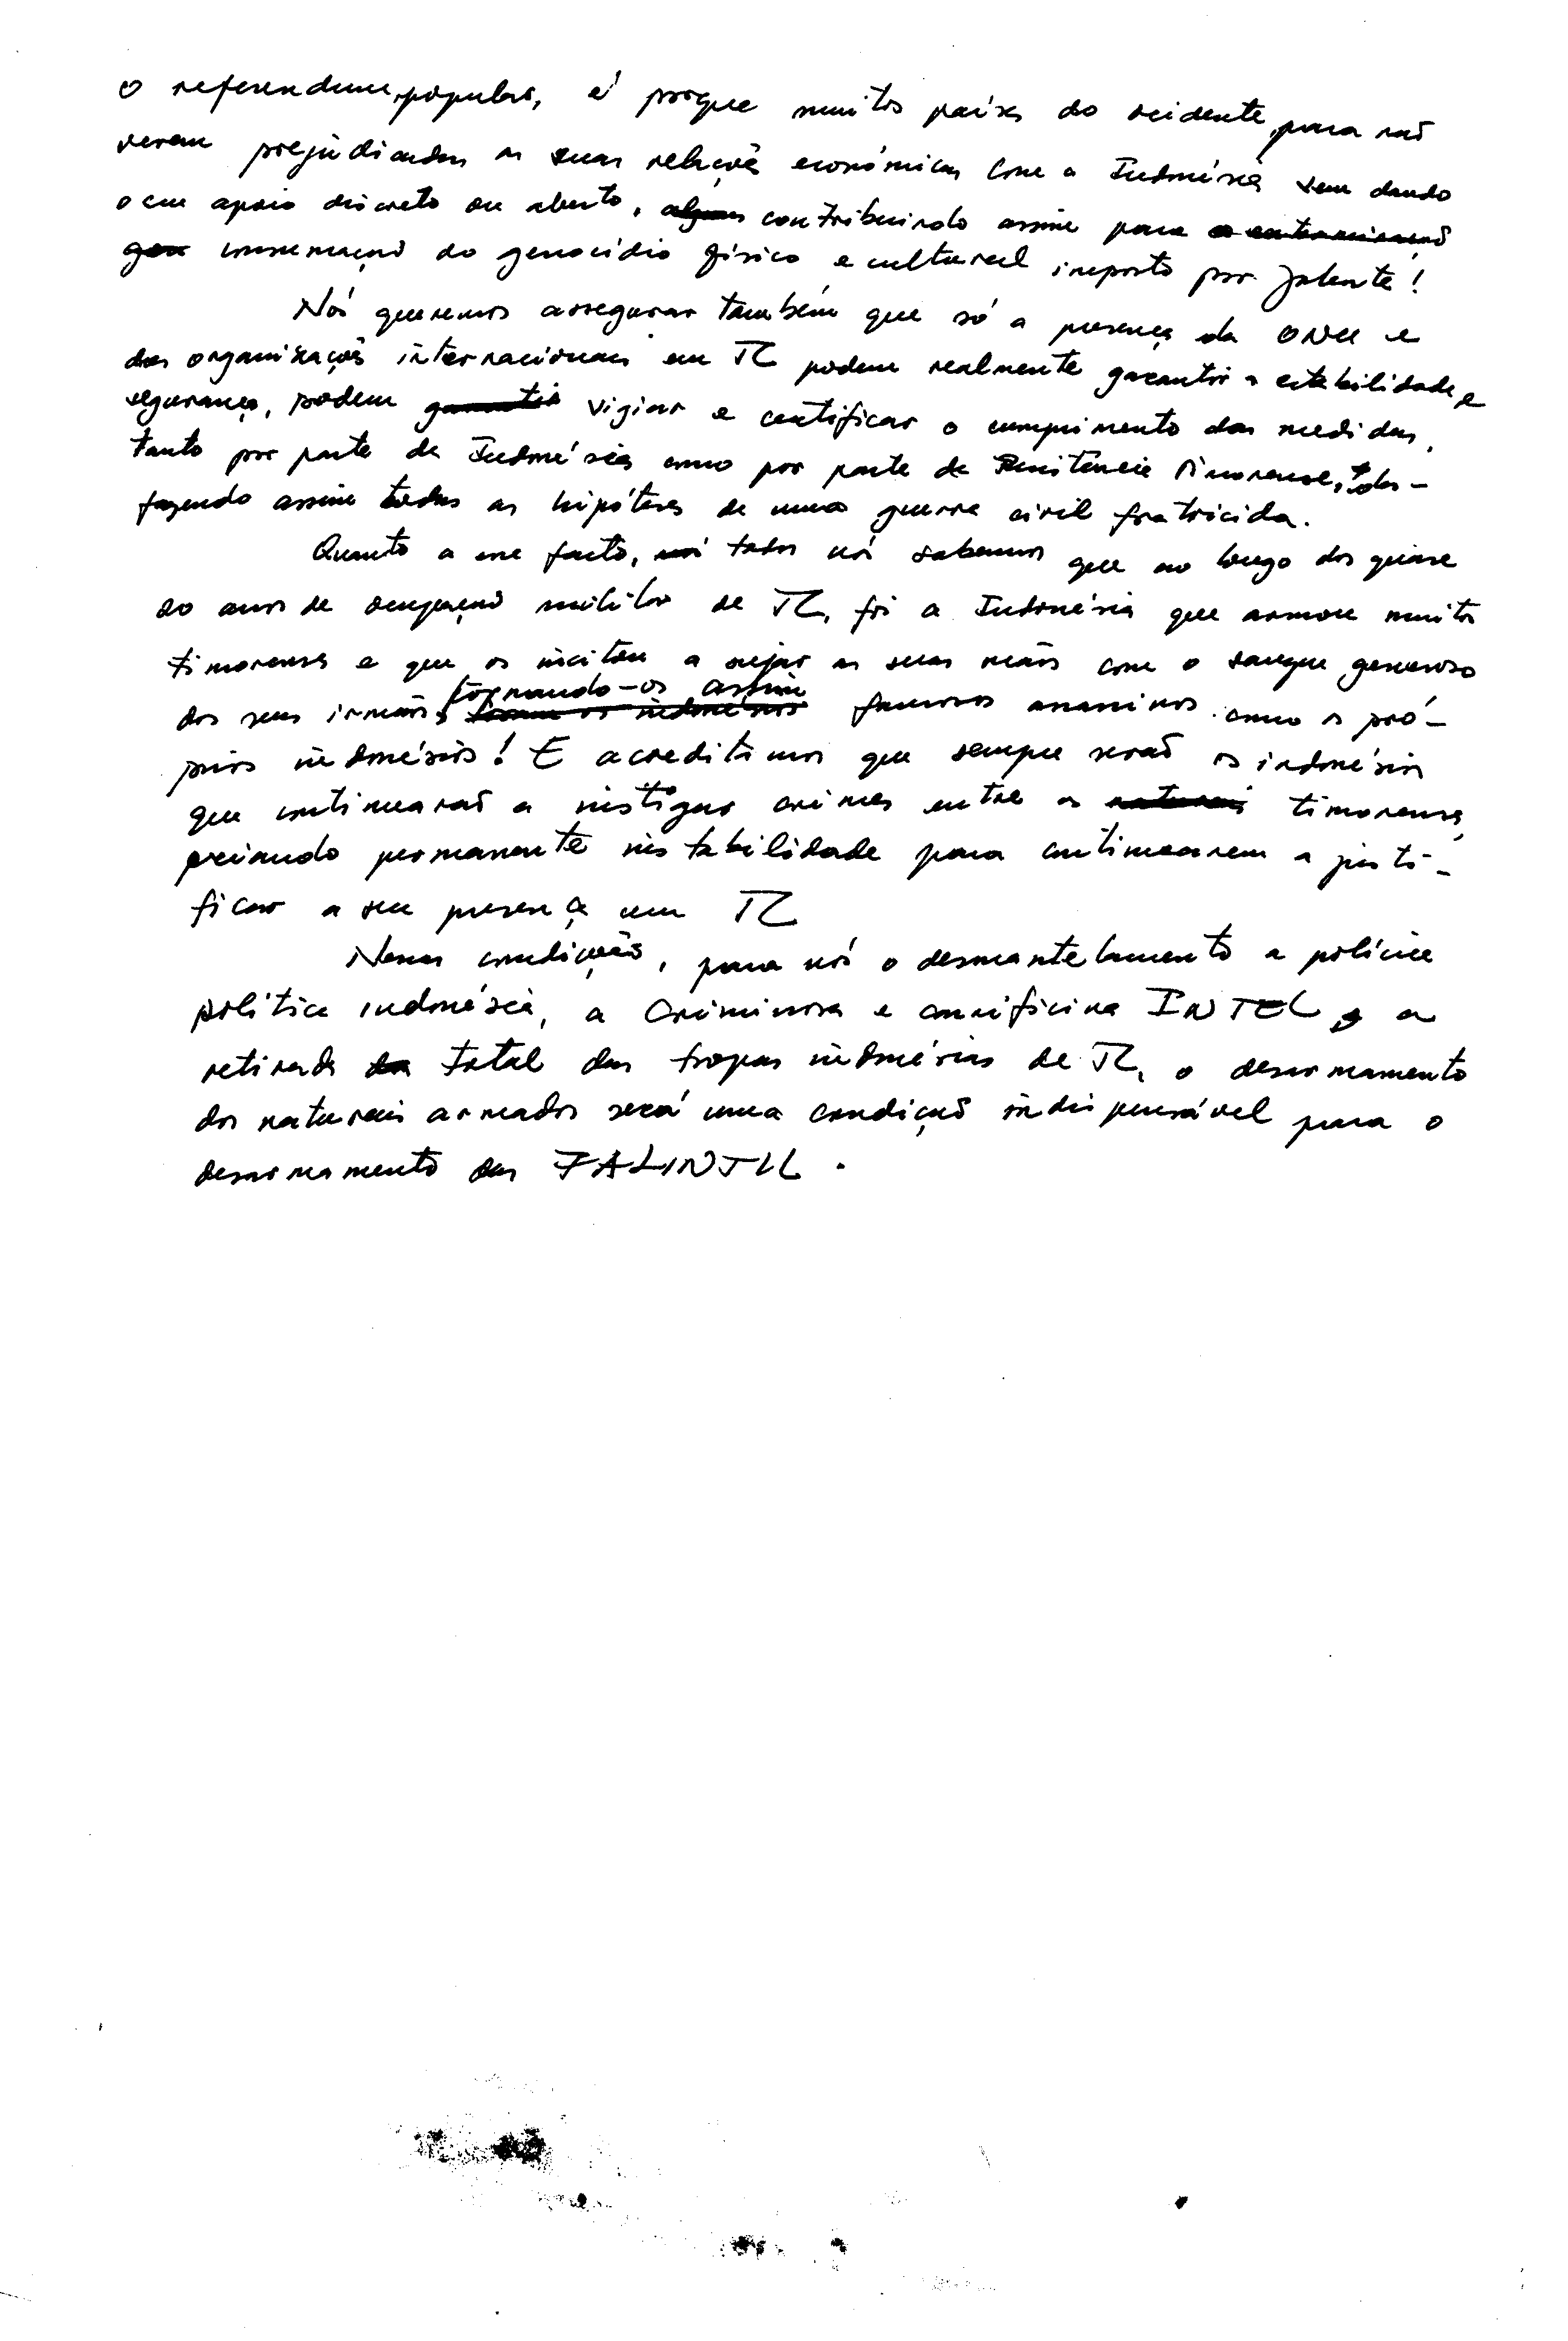 o referendum popular, é porque muitos países do ocidente, para não
verem prejudicadas as suas relações económicas com a Indonésia vem dando
o seu apoio discreto ou aberto, alguns contribuindo assim para a exterminação
gen consumação do genocídio físico e cultural imposto por Jakarta!
Nós queremos assegurar também que só a presença da ONU e
das organizações internacionais em TL podem realmente garantir a estabilidade e
segurança, podem garantir vigiar e certificar o cumprimento das medidas,
tanto por parte da Indonésia como por parte da Resistência Timorense, des-
fazendo assim todas as hipóteses de uma guerra civil fratricida.
Quanto a esse facto, nós todos nós sabemos que ao longo dos quase
20 anos de ocupação militar de TL, foi a Indonésia que armou muitos
timorenses e que os incitou a sujar as suas mãos com o sangue generoso
tornando-os assim
dos seus irmãos, como os indonésios famosos assassinos como os pró-
prios indonésios! E acreditamos que sempre serão os indonésios
que continuarão a instigar crimes entre os naturais timorenses,
criando permanente instabilidade para continuarem a justi-
ficar a sua presença em TL
Nessas condições, para nós o desmantelamento a polícia
política indonésia, a criminosa e carnificina INTEL, a
retirada da total das tropas indonésias de TL, o desarmamento
dos naturais armados será uma condição indispensável para o
desarmamento das FALINTIL.